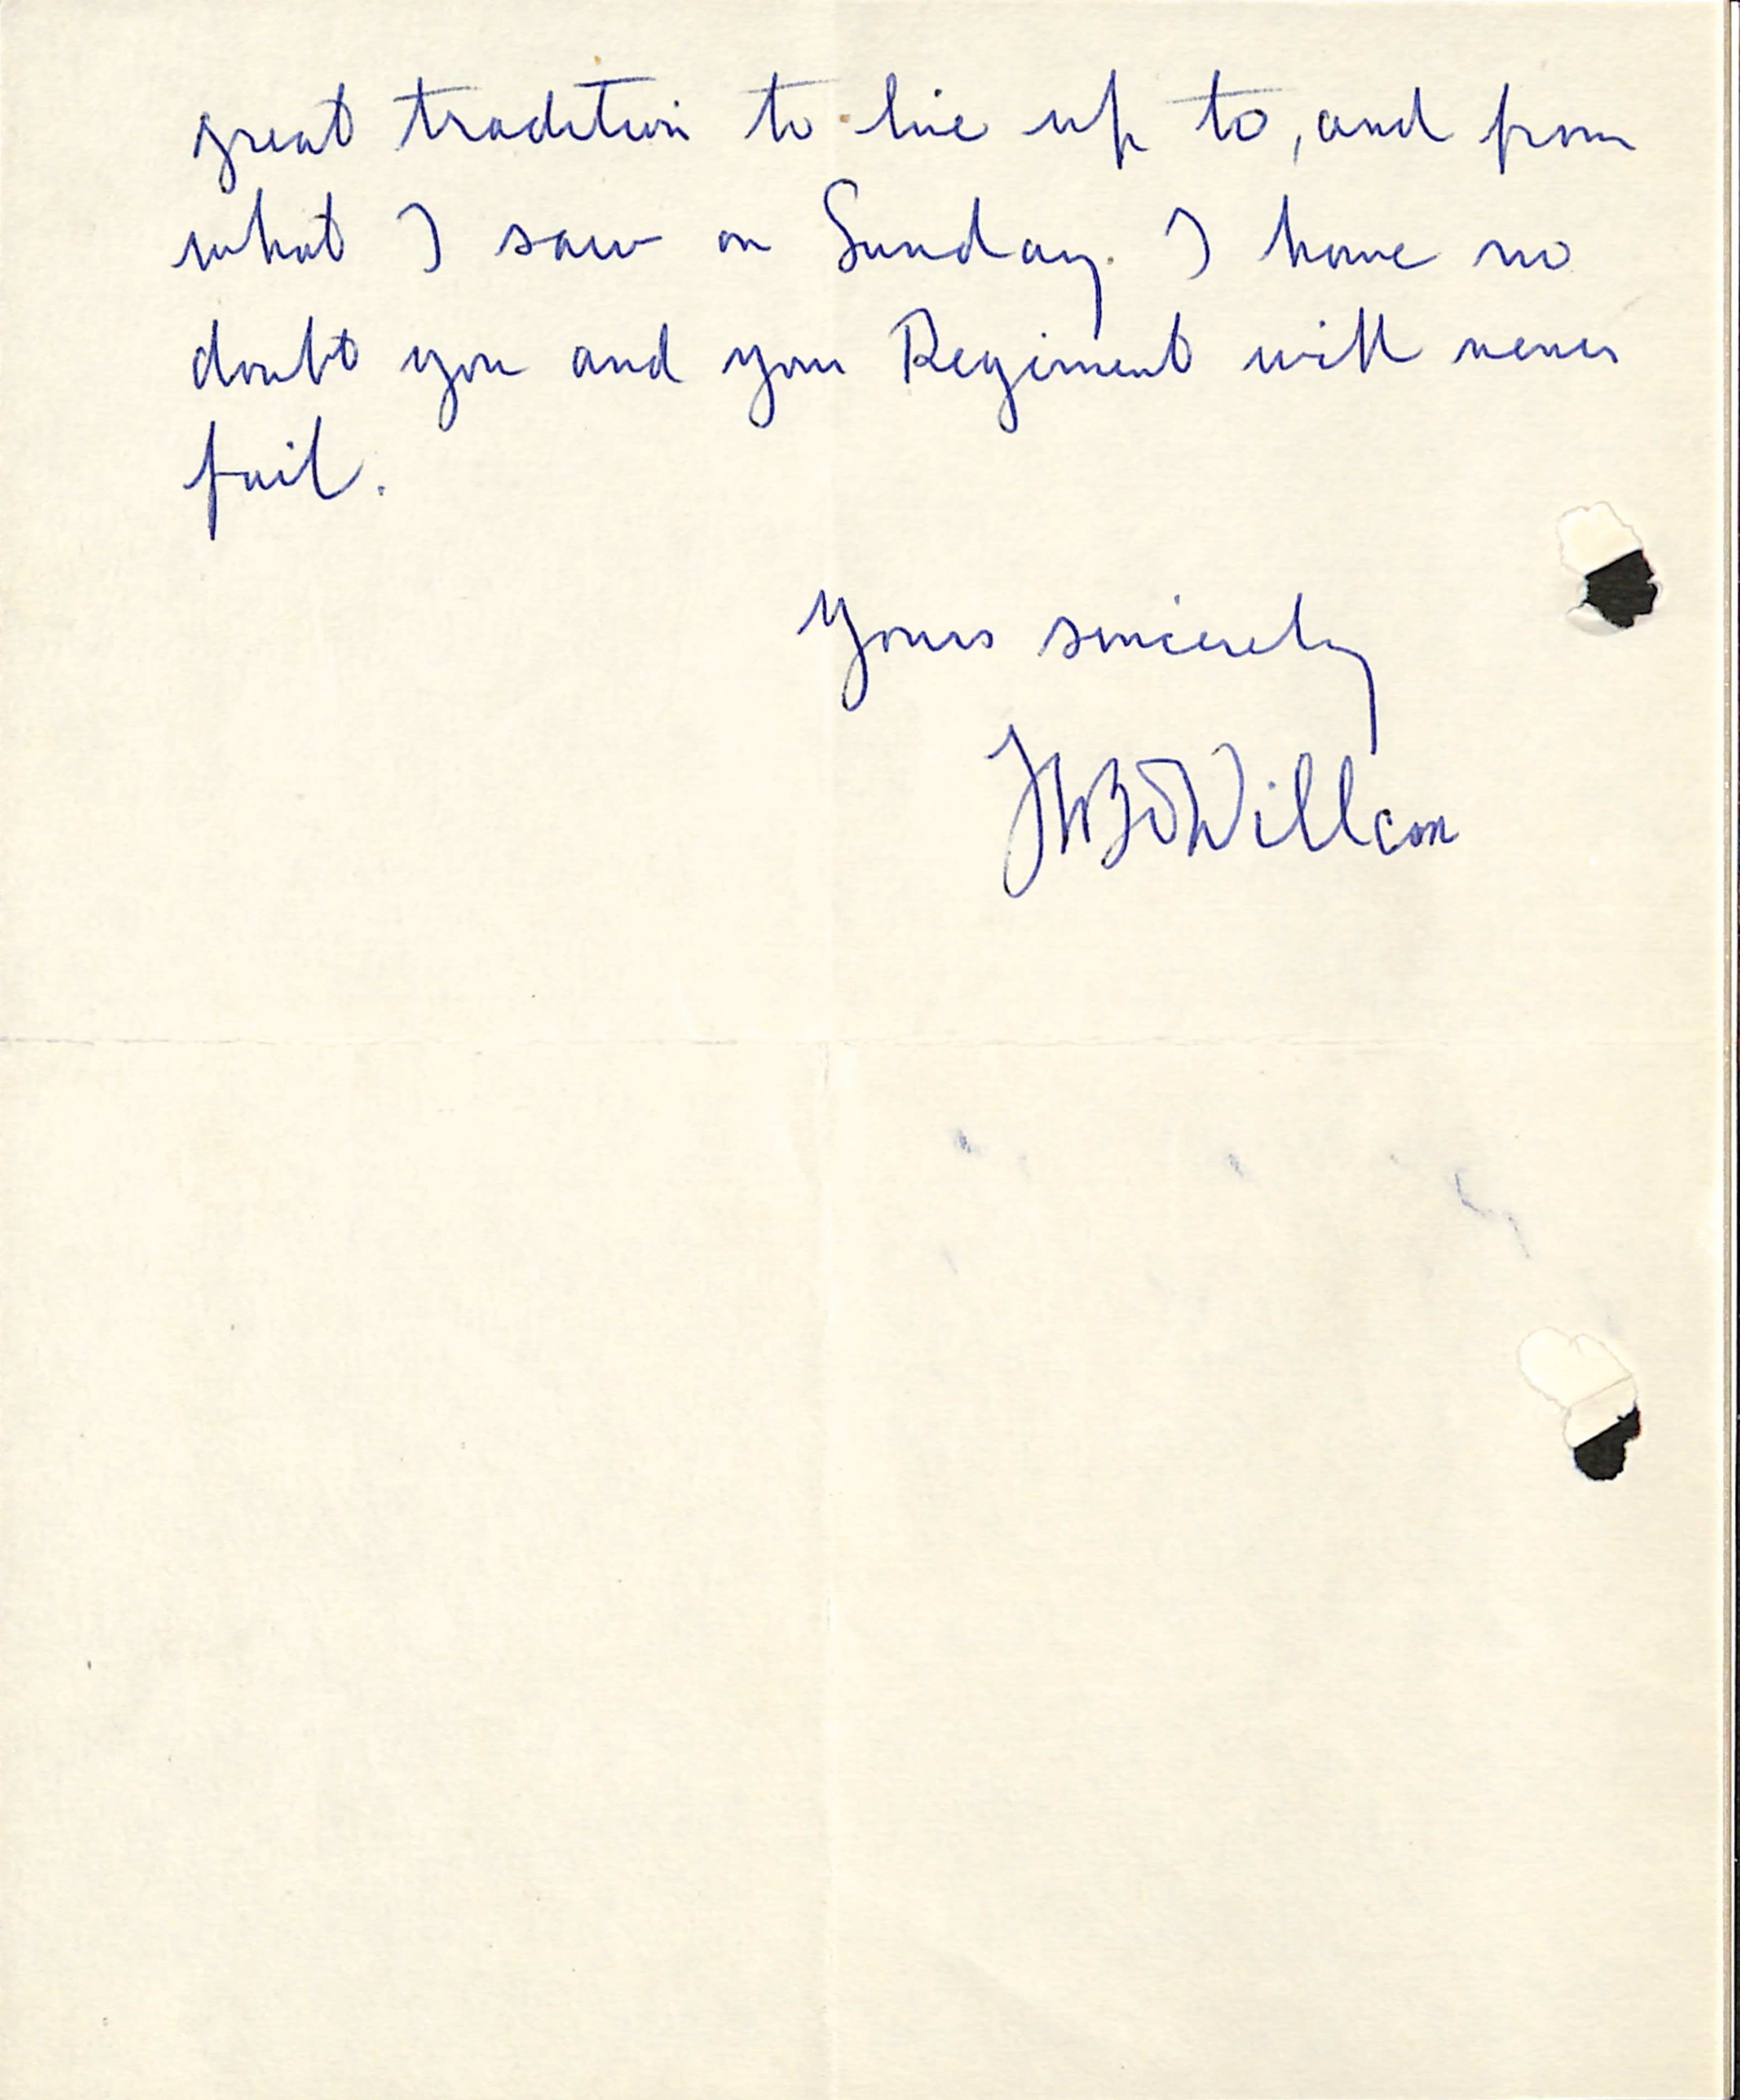 great tradition to live up to, and from
what I saw on Sunday. I have no
doubt you and your Regiment will never
fail.
Yours sincerely
Willcox